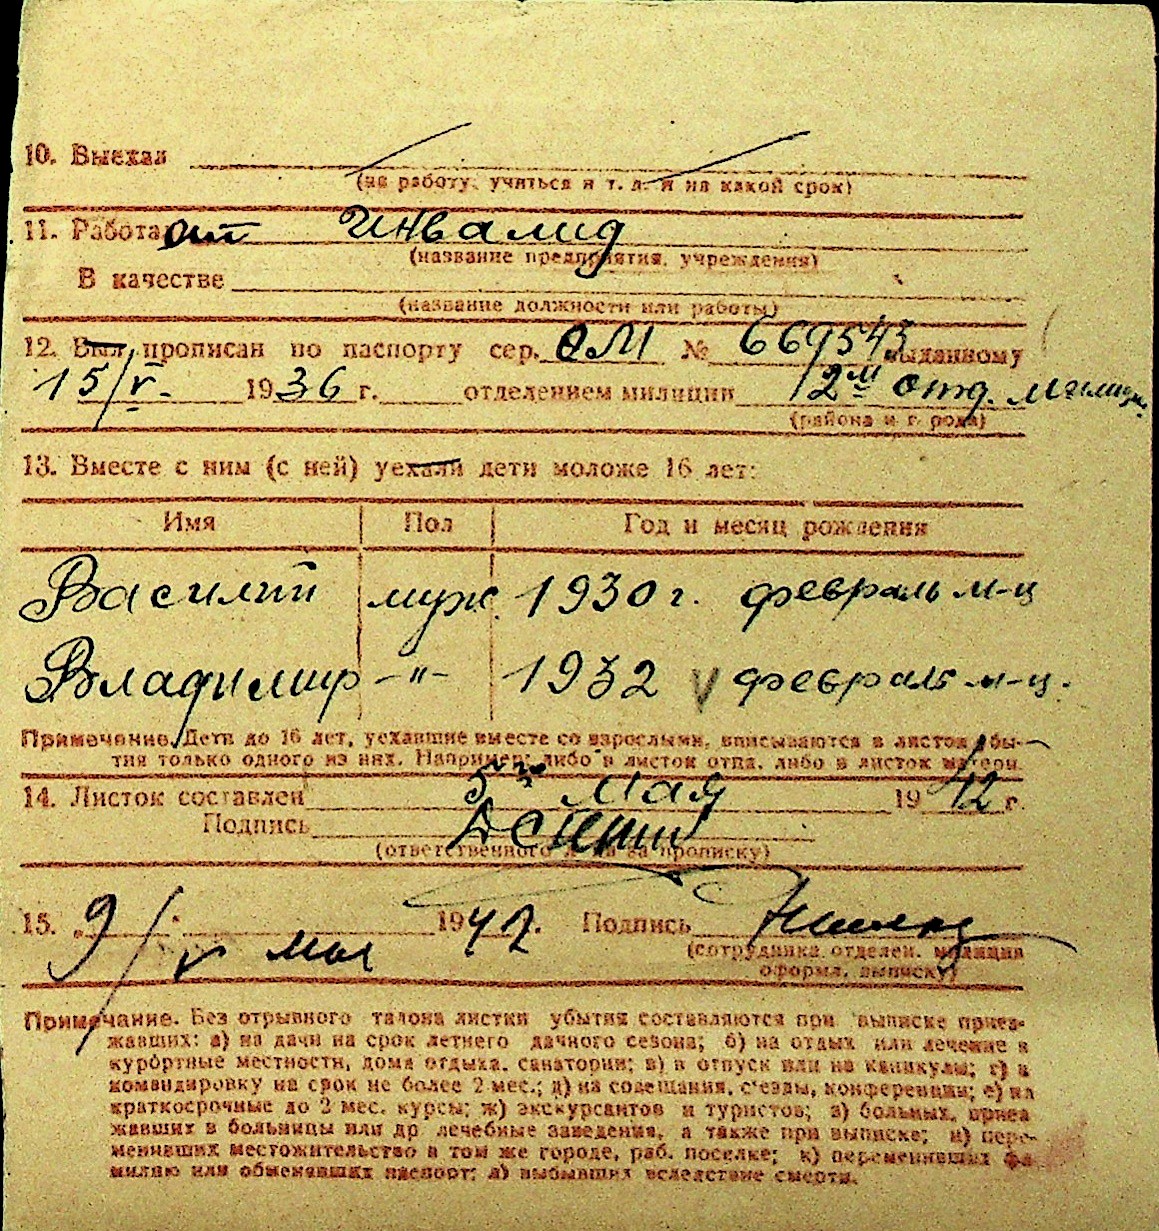 10. Выехал
(на работу, учиться и т. д. и на какой срок)
11. Работает Инвалид
(название предприятия, учреждения)
В качестве
(название должности или работы)
12. Был прописан по паспорту сер. ОМ № 669543 выданному
15/V. 1936 г. отделением милиции 12м отд. милиции
(района и города)
13. Вместе с ним (с ней) уехали дети моложе 16 лет:
Имя Пол Год и месяц рождения
Василий муж 1930 г. февраль м-ц
Владимир -"- 1932 V февраль м-ц.
Примечание. Дети до 16 лет, уехавшие вместе со взрослыми, вписываются в листок убы-
тия только одного из них. Например: либо в листок отца, либо в листок матери.
14. Листок составлен 5го мая 1942 г.
Подпись
(ответственного лица за прописку)
15. 9/V мая 1942. Подпись
(сотрудника отделен. милиции
оформл. выписку)
Примечание. Без отрывного талона листки убытия составляются при выписке приез-
жавших: а) на дачи на срок летнего дачного сезона; б) на отдых или лечение в
курортные местности, дома отдыха, санатории; в) в отпуск или на каникулы; г) в
командировку на срок не более 2 мес.; д) на совещания, с'езды, конференции; е) на
краткосрочные до 2 мес. курсы; ж) экскурсантов и туристов; з) больных, приез
жавших в больницы или др лечебные заведения, а также при выписке; и) пере-
менивших местожительство в том же городе, раб. поселке; к) переменивших фа
милию или обменявших паспорт; л) выбывших вследствие смерти.